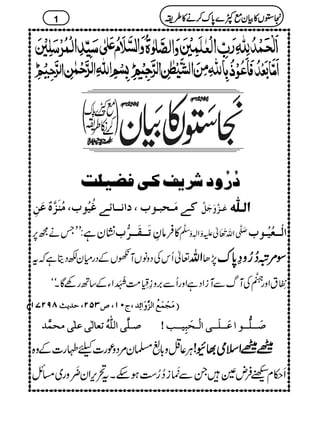 نجاستوں کا بیان مع کپڑے پاک کرنے کا طریقہ
1
اَلْحَمْدُ لِلّٰهِ رَبِّ الْعٰلَمِیْنَ وَالصَّلٰوةُ وَالسَّلَامُ عَلٰی سَیِّدِ الْمُرْسَلِیْنَ
اَمَّا بَعْدُ فَاَعُوْذُ بِاللّٰهِ مِنَ الشَّیْطٰنِ الرَّجِیْمِ بِسْمِ اللّٰهِ الرَّحْمٰنِ الرَّحِیْمِ
نَجاستوں کا بیان
مع کپڑے پاک
کرنے کا طریقہ
دُرُود شریف کی فضیلت
اللّٰہ عَزَّوَجَلَّ کے مَحبوب ، دانائے غُیُوب، مُنَزَّہٌ عَنِ
الْعُیُوب صلَّی اللہُ تعالٰی علیہ واٰلہٖ وسلَّم کا فرمانِ تَقَرُّب نشان ہے: ’’جس نے مجھ پر
سو مرتبہ دُرُودِ پاک پڑھا اللہ تعالٰی اُس کی دونوں آنکھوں کے درمیان لکھ دیتا ہے کہ یہ
نِفاق اور جہنَّم کی آگ سے آزاد ہے اور اُسے بروزِ قِیامت شُہَداء کے ساتھ رکھے گا۔‘‘
(مَجْمَعُ الزَّوَائِد ،ج۱۰، ص۲۵۳، حدیث ۱۷۲۹۸)
صَلُّوا عَلَی الْحَبِیب ! صلَّی اللّٰہُ تعالٰی علٰی محمَّد
میٹھے میٹھے اسلامی بھائیو! ہر عاقل و بالغ مسلمان مرد و عورت کیلئے طہارت کے وہ
اَحکام سیکھنے فرضِ عین ہیں جن سے نماز دُرُست ہو سکے۔ یہ تحریر اِن ضَروری مسائل